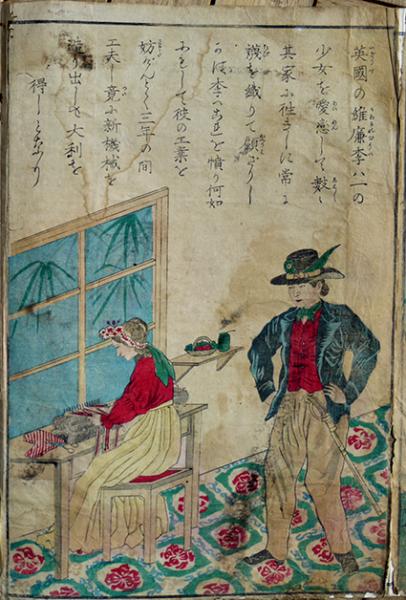 英國の維廉李ハ一の
少女を愛恋して數〻
其家に往きしに常に
襪を織りて顧ざりし
かば李ハこれを憤り何如
にもして彼の工業を
妨げんとて三年の間
工夫し竟に新機械を
造り出して大利を
得しとなり